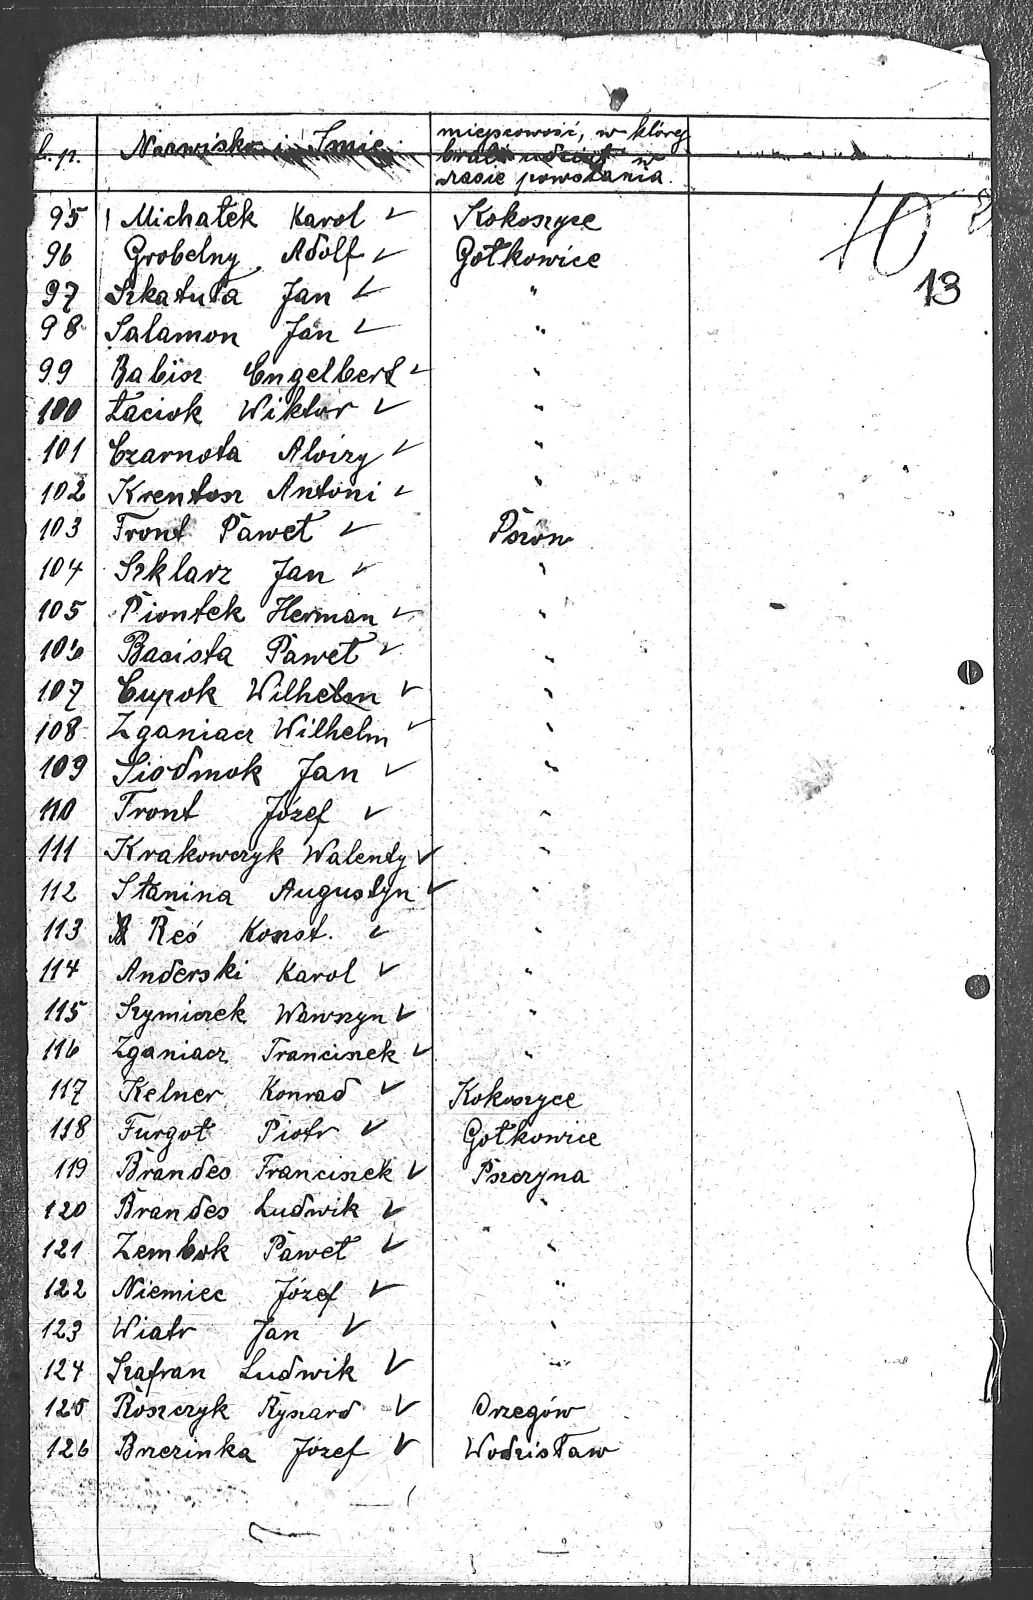 L.p. Nazwisko i Imię miejscowość, w której
brał udział w
czasie powstania.
95 Michałek Karol ✓ Kokoszyce
10
96 Grobelny Adolf ✓ Gołkowice
13
97 Szkatuła Jan ✓ "
98 Salamon Jan ✓ "
99 Babisz Engelbert ✓ "
100 Łaciok Wiktor ✓ "
101 Czarnota Alojzy ✓ "
102 Krentosz Antoni ✓ "
103 Front Paweł ✓ Pszów
104 Szklarz Jan ✓ "
105 Piontek Herman ✓ "
106 Basista Paweł ✓ "
107 Cupok Wilhelm ✓ "
108 Zganiacz Wilhelm ✓ "
109 Siodmok Jan ✓ "
110 Front Józef ✓ "
111 Krakowczyk Walenty ✓ "
112 Stanina Augustyn ✓ "
113 Reś Konst. ✓ "
114 Anderski Karol ✓ "
115 Szymiczek Wawszyn ✓ "
116 Zganiacz Franciszek ✓ "
117 Kelner Konrad ✓ Kokoszyce
118 Furgoł Piotr ✓ Gołkowice
119 Brandes Franciszek ✓ Pszczyna
120 Brandes Ludwik ✓ "
121 Zembok Paweł ✓ "
122 Niemiec Józef ✓ "
123 Wiatr Jan ✓ "
124 Szafran Ludwik ✓ "
125 Roszczyk Ryszard ✓ Orzegów
126 Brzezinka Józef ✓ Wodzisław